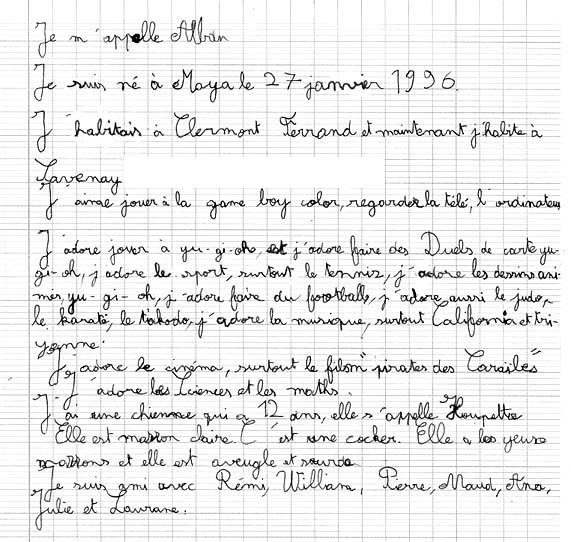 Je m'appelle Alban
Je suis né à Maya le 27 janvier 1996.
J'habitais à Clermont Ferrand et maintenant j'habite à
Lavenay
J'aime jouer à la game boy color, regarder la télé, l'ordinateur
J'adore jouer à yu-gi-oh, et j'adore faire des Duels de carte yu-
gi-oh, j'adore le sport, surtout le tenniz, j'adore les dessins ani-
més, yu-gi-oh, j'adore faire du football, j'adore aussi le judo,
le karaté, le takodo, j'adore la musique, surtout California et tri-
yonne.
J'adore le cinéma, surtout le film "pirates des Caraïbes"
J'adore les sciences et les maths.
J'ai une chienne qui a 12 ans, elle s'appelle Houpette
Elle est marron claire. C'est une cocker. Elle a les yeux
marrons et elle est aveugle et sourde
Je suis ami avec Rémi, William, Pierre, Maud, Ana,
Julie et Laurane.